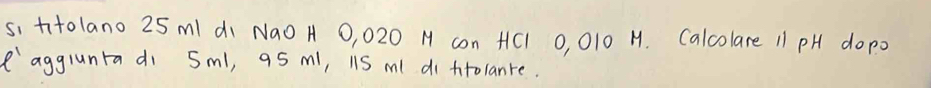 Si titolano 25 ml di NaOH 0,020 M con HCl 0,010 M. Calcolare il pH dopo
l'aggiunta di 5ml, 95 ml, 115 ml di titolante.